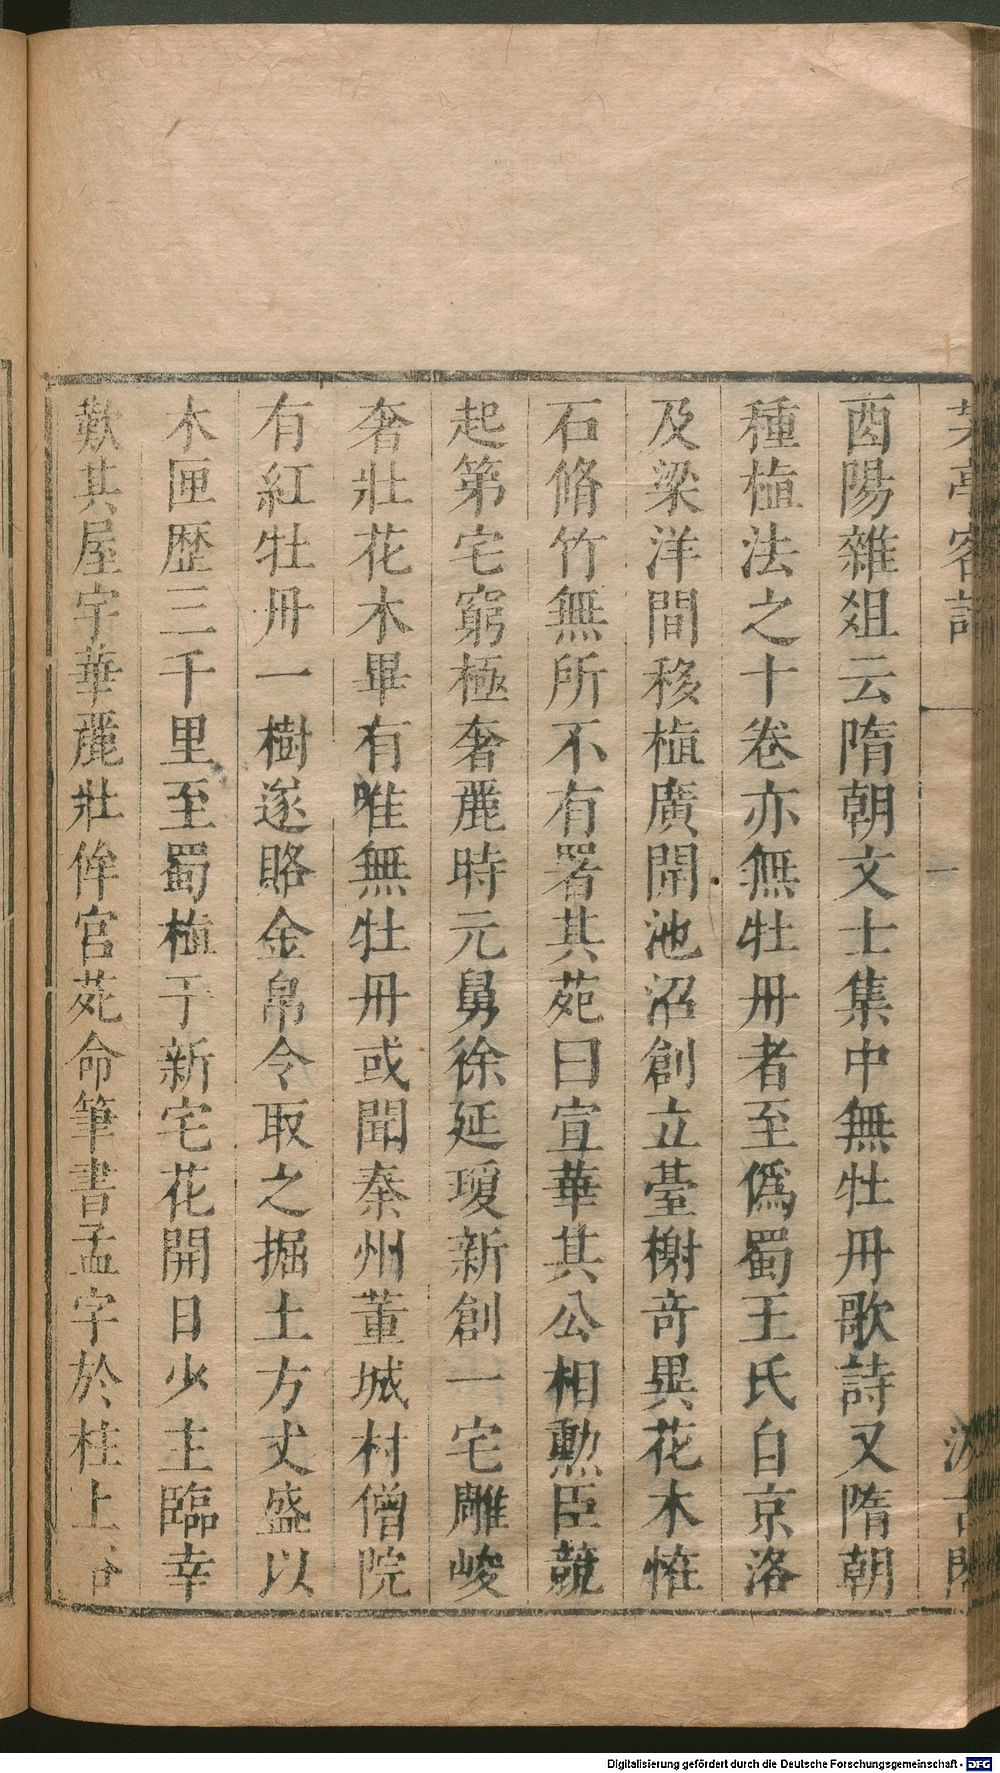 茅亭客話
一
汲古閣
酉陽雜俎云隋朝文士集中無牡丹歌詩又隋朝
種植法之十卷亦無牡丹者至僞蜀王氏自京洛
及梁洋間移植廣開池沼創立臺榭奇異花木恠
石脩竹無所不有署其苑曰宣華其公相勲臣競
起第宅窮極奢麗時元舅徐延瓊新創一宅雕峻
奢壯花木畢有唯無牡丹或聞秦州董城村僧院
有紅牡丹一樹遂賂金帛令取之掘土方丈盛以
木匣歷三千里至蜀植于新宅花開日少主臨幸
歎其屋宇華麗壯侔宮苑命筆書孟字於柱上俗
Digitalisierung gefördert durch die Deutsche Forschungsgemeinschaft - DFG